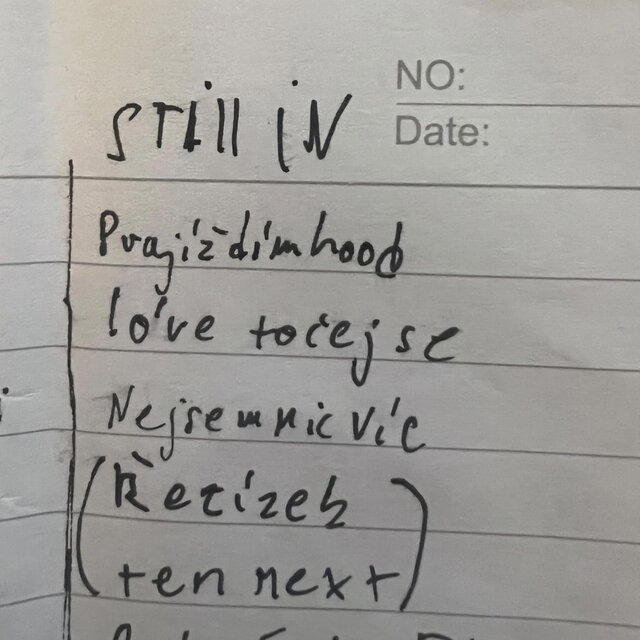 NO:
Date:
STill iN
Projíždím hood
lóve točej se
Nejsem nic víc
(Řetízek
ten next)